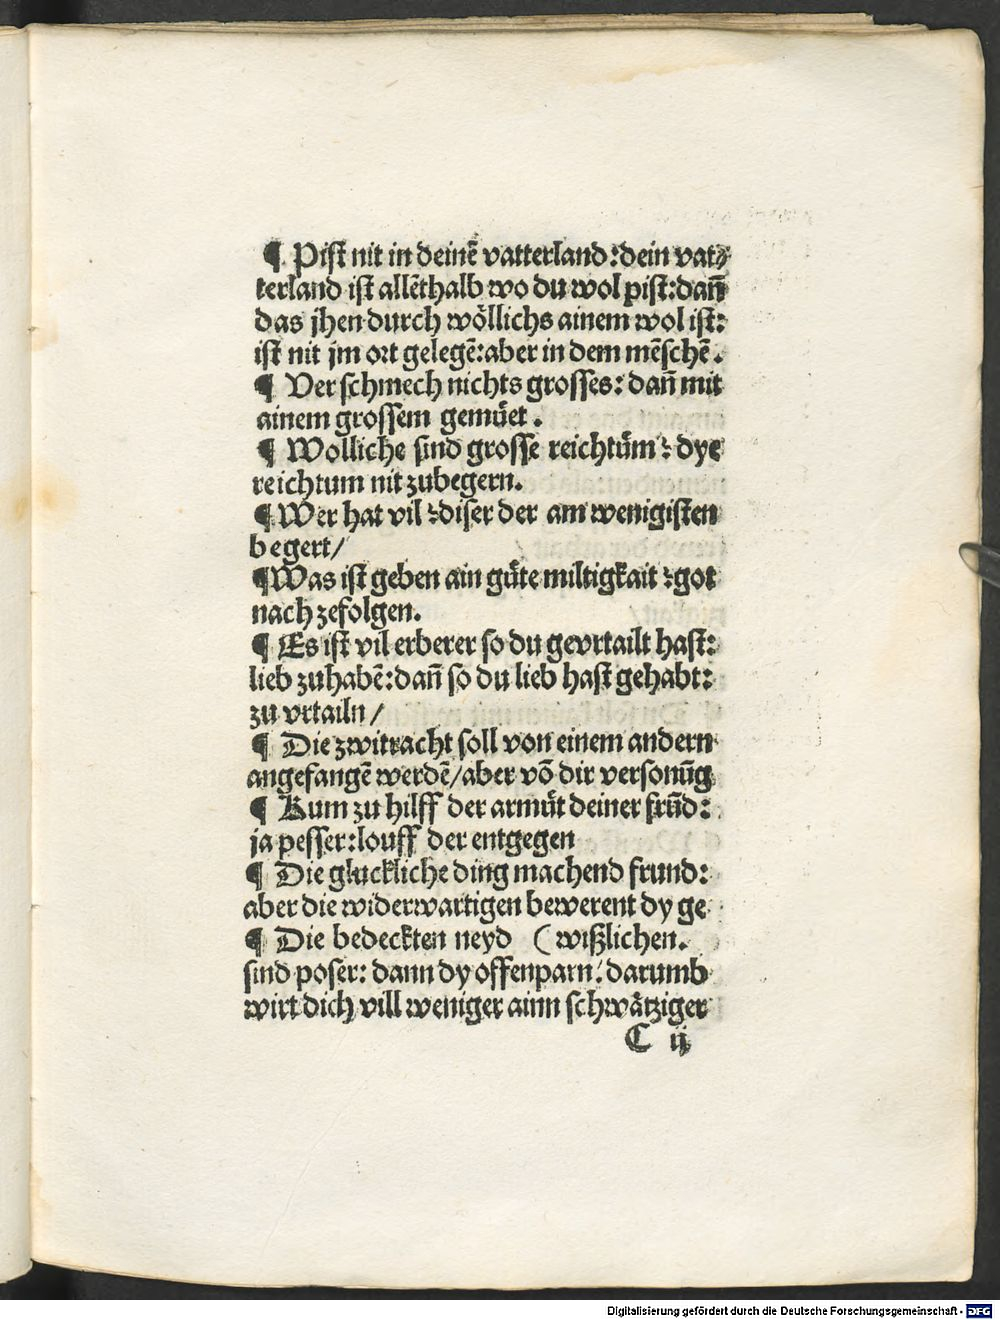 ¶ Pist nit in deinē vatterland: dein vat⸗
terland ist allēthalb wo du wol pist: dañ
das jhen durch wöllichs ainem wol ist:
ist nit jm ort gelegē: aber in dem mēschē.
¶ Verschmech nichts grosses: dañ mit
ainem grossem gemüet.
¶ Wolliche sind grosse reichtüm ⁊ dye
reichtum nit zubegern.
¶ Wer hat vil ⁊ diser der am wenigisten
begert/
¶ Was ist geben ain gůte miltigkait ⁊ got
nach zefolgen.
¶ Es ist vil erberer so du gevrtailt hast:
lieb zuhabē: dañ so du lieb hast gehabt:
zu vrtailn/
¶ Die zwitracht soll von einem andern
angefangē werdē/aber vō dir versonūg
¶ Kum zu hilff der armůt deiner frūd:
ja pesser: louff der entgegen
¶ Die gluckliche ding machend frund:
aber die widerwartigen bewerent dy ge
¶ Die bedeckten neyd ( wißlichen.
sind poser: dann dy offenparn: darumb
wirt dich vill weniger ainn schwätziger
C ij
Digitalisierung gefördert durch die Deutsche Forschungsgemeinschaft - DFG